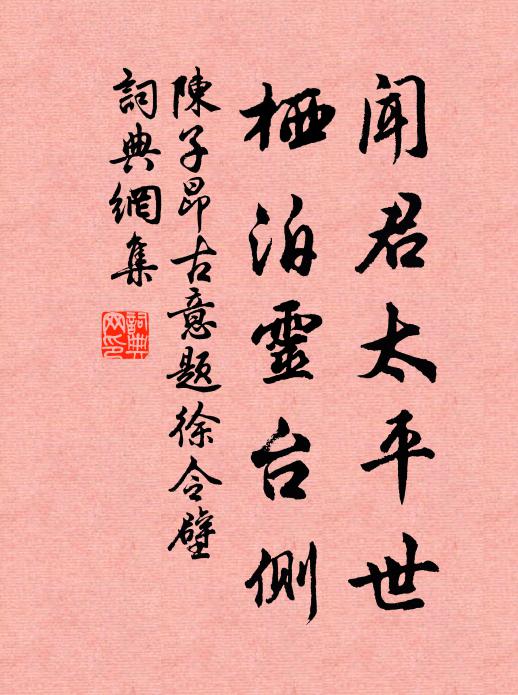 聞君太平世
栖泊靈台側
陳子昂古意題徐令壁
詞典網集
詞典網印